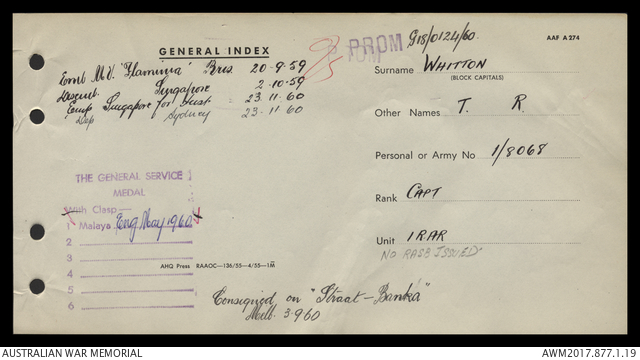 GENERAL INDEX
PROM
G18/0124/60.
AAF A 274
Emb M.V. "Flaminia" Bris 20-9-59
Disemb. Singapore 2-10-59
Emp Singapore for Aust. 23.11.60
Dep Sydney 23-11-60
Surname WHITTON
(BLOCK CAPITALS)
Other Names T. R.
Personal or Army No 1/8068
Rank CAPT
Unit 1 RAR
NO RASB ISSUED
THE GENERAL SERVICE
MEDAL
With Clasp—
1 Malaya Eng May 1960
2
3
4
5
6
AHQ Press RAAOC—136/55—4/55—1M
Consigned on "Straat-Banka"
Melb. 3-9-60
AUSTRALIAN WAR MEMORIAL
AWM2017.877.1.19